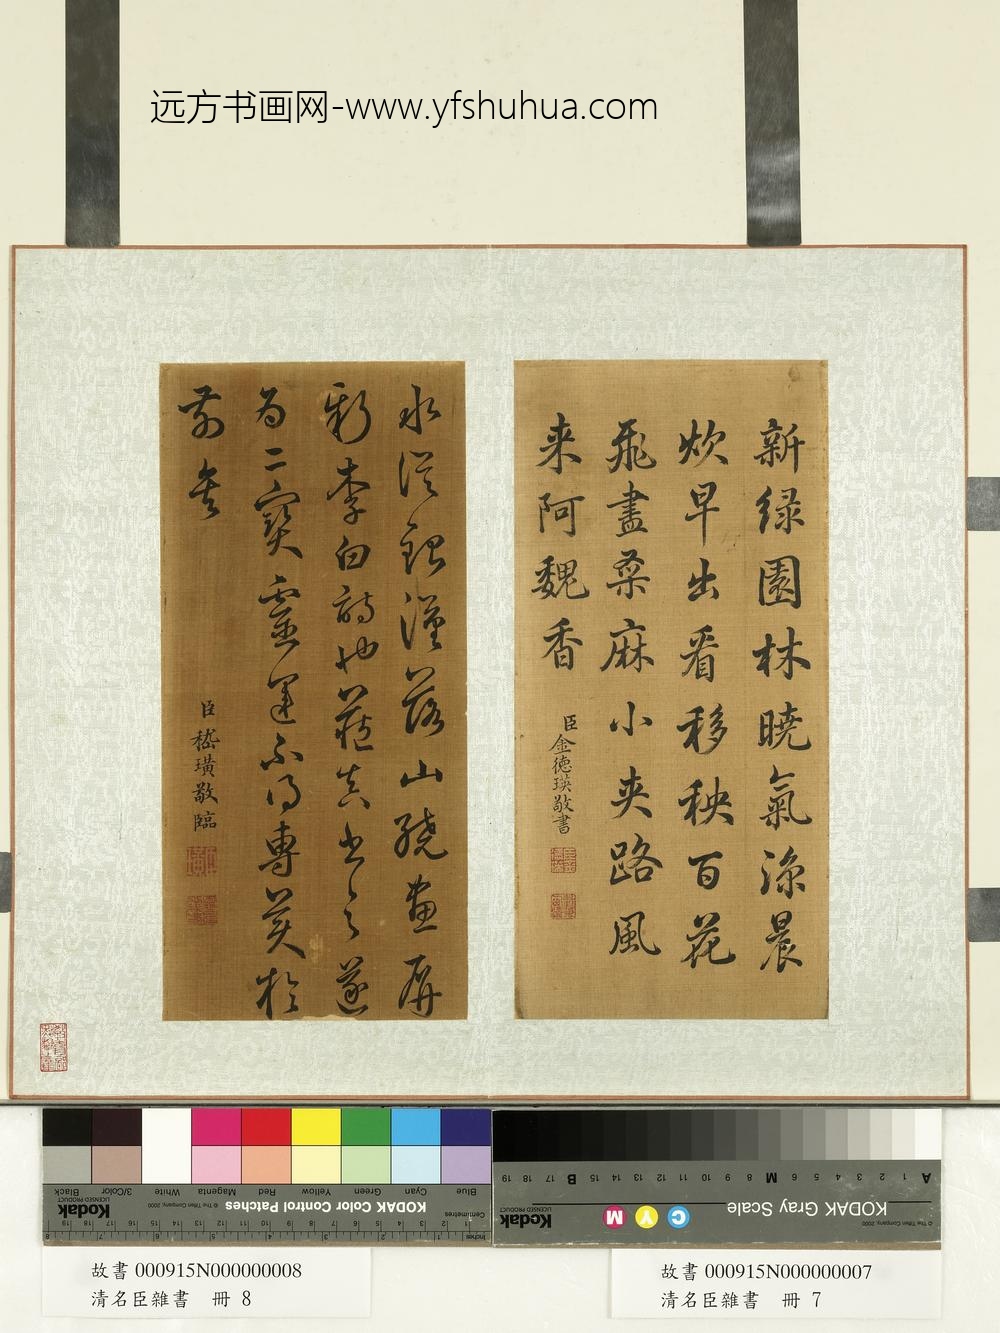 远方书画网-www.yfshuhua.com
新緑園林曉氣涼晨
炊早出看移秧百花
飛盡桑麻小夾路風
来阿魏香
臣金德瑛敬書
水從銀漢落山繞畫屏
新李白詩也蘇
遂
為二寳靈運不得專美於
前矣
臣嵇璜敬臨
Blue Cyan Green Yellow Red Magenta White 3/Color Black
KODAK Color Control Patches
© The Tiffen Company, 2000
Kodak
LICENSED PRODUCT
Centimetres
Inches
KODAK Gray Scale
C Y M
Kodak
LICENSED PRODUCT
© The Tiffen Company, 2000
A 1 2 3 4 5 6 M 8 9 10 11 12 13 14 15 B 17 18 19
故書 000915N000000008
清名臣雜書 冊 8
故書 000915N000000007
清名臣雜書 冊 7